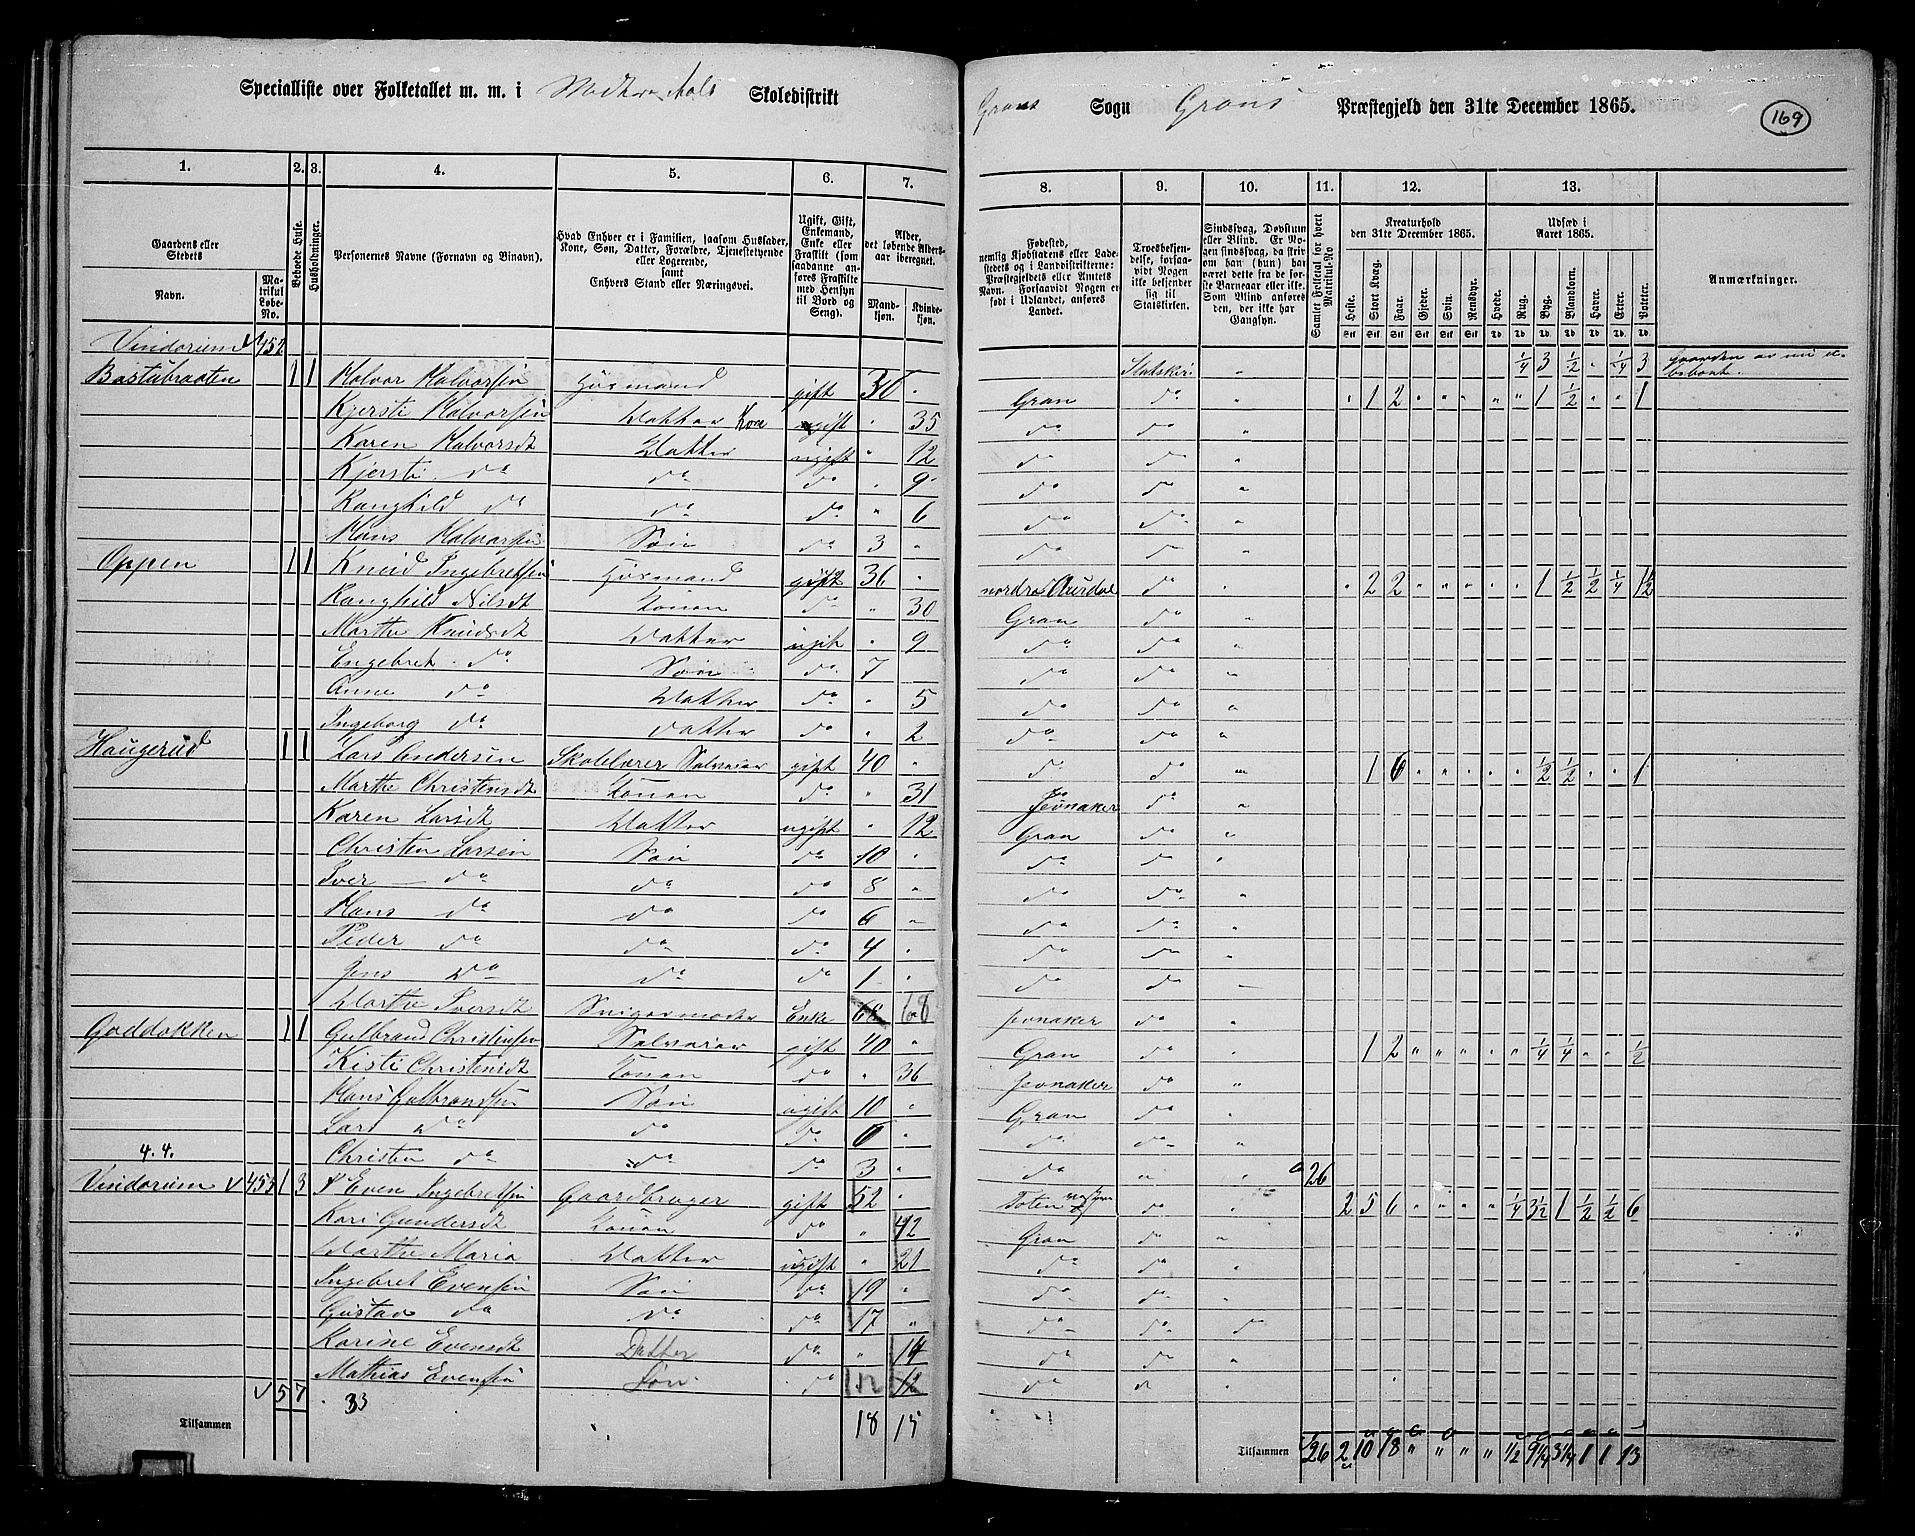 Specialliste over Folketallet m. m. i Skoledistrikt
Grans Sogn Grans Præstegjeld den 31te December 1865.
169
1. 2. 3. 4. 5. 6. 7.
8. 9. 10. 11. 12. 13.
Gaardens eller Stedets Navn.
Matrikul Løbe-No.
Beboede Huse.
Husholdninger.
Personernes Navne (Fornavn og Binavn).
Hvad Enhver er i Familien, saasom Husfader, Kone, Søn, Datter, Forældre, Tjenestetyende eller Logerende, samt Enhvers Stand eller Næringsvei.
Ugift, Gift, Enkemand, Enke eller Fraskilt (som saadanne anføres Fraskilte med Hensyn til Bord og Seng).
Alder, det løbende Alders-aar iberegnet.
Mandkjøn.
Kvindekjøn.
Fødested, nemlig Kjøbstadens eller Ladestedets og i Landdistrikterne: Præstegjeldets eller Amtets Navn. Forsaavidt Nogen er født i Udlandet, anføres Landet.
Troesbekjendelse, forsaavidt Nogen ikke bekjender sig til Statskirken.
Sindssvag, Døvstum eller Blind. Er Nogen sindssvag, da skriv om han (hun) har været dette fra de første Barneaar eller ikke. Som Blind anføres den, der ikke har Gangsyn.
Samlet Folketal for hvert Matrikul-No
Kreaturhold den 31te December 1865.
Heste. Stort Kvæg. Faar. Gjeder. Svin. Rensdyr.
Udsæd i Aaret 1865.
Hvede. Rug. Byg. Blandkorn. Havre. Erter. Poteter.
Anmærkninger.
Vindorum √ 452 Statskir " 1/4 3 1/2 " 1/4 3 Gaarden
Bastubraaten 1 1 Halvor Halvorsen Huusmand gift 36 " Gran do " " 1 2 " " " " " 1 1/2 " " 1
Kjersti Halvorsen Datter Kone ugift " 35 do do "
Karen Halvorsdt Datter ugift " 12 do do "
Kjersti do do do " 9 do do "
Ranghild do do do " 6 do do "
Hans Halvorsen Søn do 3 " do do "
Oppen 1 1 Knud Ingebretsen Huusmand gift 36 " nordre Aurdal do " " 2 2 " " " " " 1 1/2 1/2 1/4 1 1/2
Ranghild Nilsdt Konen do " 30 Gran do "
Marthe Knudsdt Datter ugift " 9 do do "
Engebret do Søn do 7 do do "
Anne do Datter do " 5 do do "
Ingeborg do Datter do " 2 do do "
Haugerud 1 1 Lars Andersen Skolelærer Selveier gift 40 " do do " 1 6 " " " " " 1/2 1/2 " " 1
Marthe Christensdt Konen do " 31 Jevnaker do "
Karen Larsdt Datter ugift " 12 Gran do "
Christen Larsen Søn do 10 " do do "
Iver do do do 8 " do do "
Hans do do do 6 " do do "
Peder do do do 4 " do do "
Jens do do do 1 " do do "
Marthe Iversdt Svigermoder Enke 68 68 Jevnaker do "
Goddokken 1 1 Gulbrand Christensen Selveier gift 40 " Gran do " 1 2 " " " " " 1/4 1/4 " " 1/2
Kisti Christensdt Konen do " 36 Jevnaker do "
Hans Gulbrandsen Søn ugift 10 " Gran do "
Lars do do do 6 " do do "
4.4. Christen do do do 3 " do " " 26
Vindorum √ 453 1 3 Even Ingebretsen Gaardbruger gift 52 " Toten do " 2 5 6 " " " " 1/4 3 1/2 1 1/2 1/2 6
Kari Gundersdt Konen do " 42 Gran do "
Marthe Maria Datter ugift " 21 do do "
Ingebret Evensen Søn do 19 " do do "
Gustav do do do 17 " do do do
Karine Evensdt Datter do " 14 do do "
Mathias Evensen Søn do 12 12 do do "
√ 5 7 33
Tilsammen 18 15
Tilsammen 26 2 10 18 " " " " 1/2 9 1/4 3 1/4 1 1 13